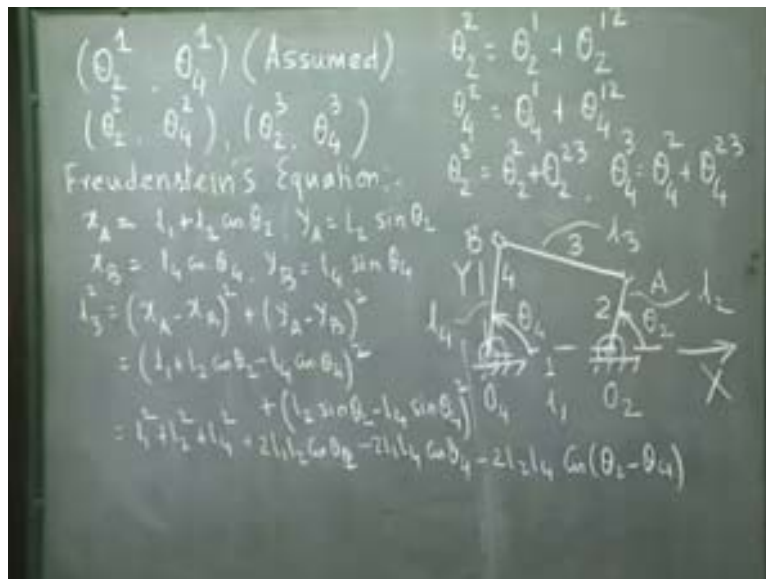 (θ₂¹, θ₄¹) (Assumed)
(θ₂², θ₄²), (θ₂³, θ₄³)
Freudenstein's Equation:-
x_A = l₁ + l₂ cos θ₂ y_A = l₂ sin θ₂
x_B = l₄ cos θ₄, y_B = l₄ sin θ₄
l₃² = (x_A - x_B)² + (y_A - y_B)²
= (l₁ + l₂ cos θ₂ - l₄ cos θ₄)²
+ (l₂ sin θ₂ - l₄ sin θ₄)²
= l₁² + l₂² + l₄² + 2l₁l₂ cos θ₂ - 2l₁l₄ cos θ₄ - 2l₂l₄ cos(θ₂ - θ₄)
θ₂² = θ₂¹ + θ₂¹²
θ₄² = θ₄¹ + θ₄¹²
θ₂³ = θ₂² + θ₂²³, θ₄³ = θ₄² + θ₄²³
B 3 l₃
Y 4 A l₂
l₄ θ₄ 2 θ₂
1 X
O₄ l₁ O₂